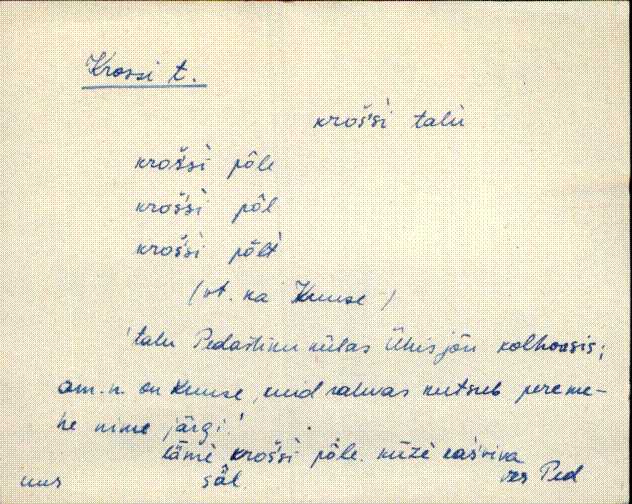 Krossi t.
kroš́śì talù
kroš́śì põ̭le
kroš́śì põ̭l
kroš́śì põ̭lt
(vt. ka Kuuse)
'talu Pedastiku külas Ühisjõu kolhoosis;
am. n. on Kuuse, uud rahvas kutsub pereme-
he nime järgi!
lämè kroš́śì põ̭le. küzè
säl.
Ped